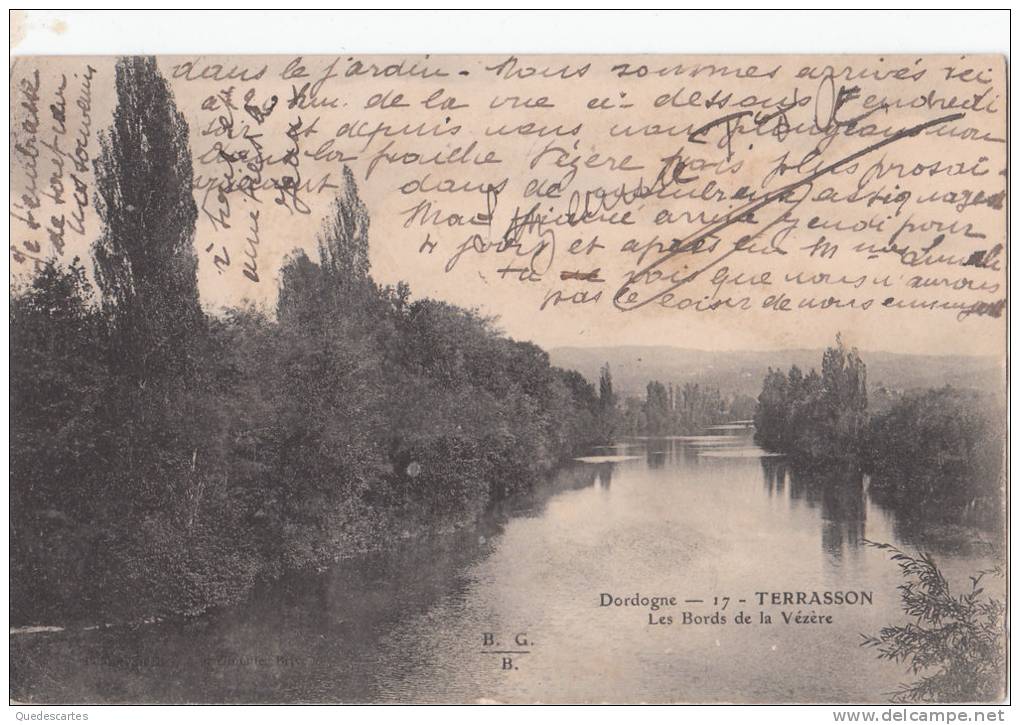 dans le jardin. Nous sommes arrivés ici
à 2 km. de la vue ci-dessous Vendredi
soir et depuis nous nous plongeons non
dans la fraîche Vézère mais plus prosaï-
quement dans de nombreux astiquages
Mad arrive jeudi pour
4 jours et après on a Mme
tu vois que nous n'aurons
pas le loisir de nous ennuyer
Je t'embrasse
de tout cœur
à toi
Dordogne — 17 - TERRASSON
Les Bords de la Vézère
B. G.
B.
Quedescartes
www.delcampe.net